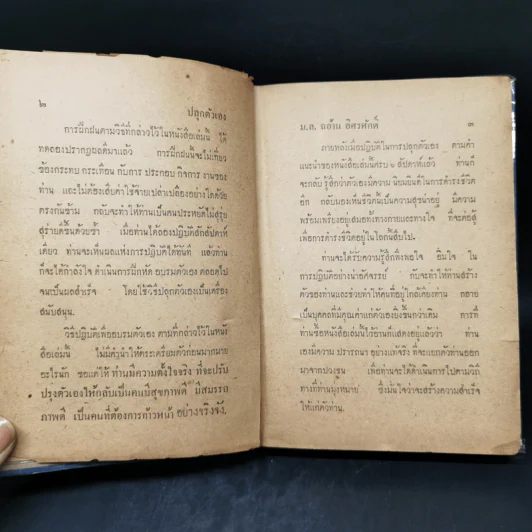 ๒ ปลุกตัวเอง
การฝึกฝนตามวิธีที่กล่าวไว้ในหนังสือเล่มนี้ ได้
ทดลองปรากฏผลดีมาแล้ว การฝึกฝนนี้จะไม่เกี่ยว
ข้องกระทบ กระเทือน กับการ ประกอบ กิจการ งานของ
ท่าน และไม่ต้องเสียค่าใช้จ่ายเปล่าเปลืองอย่างใดด้วย
ตรงกันข้าม กลับจะทำให้ท่านเป็นคนประหยัดไม่สุรุ่ย
สุร่ายดีขึ้นด้วยซ้ำ เมื่อท่านได้ลองปฏิบัติสักสัปดาห์
เดียว ท่านจะเห็นผลแห่งการปฏิบัติได้ทันที แล้วท่าน
ก็จะได้กำลังใจ ดำเนินการฝึกหัด อบรมตัวเอง ตลอดไป
จนเป็นผลสำเร็จ โดยใช้วิธีปลุกตัวเองเป็นเครื่อง
สนับสนุน.
วิธีปฏิบัติเพื่ออบรมตัวเอง ตามที่กล่าวไว้ในหนัง
สือเล่มนี้ ไม่มีต้องทำให้ตระเตรียมตัวก่อนมากมาย
อะไรนัก ขอแต่ให้ ท่านมีความตั้งใจจริง ที่จะปรับ
ปรุงตัวเองให้กลับเป็นคนมีสุขภาพดี มีสมรรถ
ภาพดี เป็นคนที่ต้องการก้าวหน้า อย่างจริงจัง.
ม.ล. ถอ้าน อิศรศักดิ์ ๓
ภายหลังเมื่อปฏิบัติในการปลุกตัวเอง ตามคำ
แนะนำของหนังสือเล่มนี้ครบ ๖ สัปดาห์แล้ว ท่านก็
จะกลับ รู้สึกว่าตัวเองมีความ นิยมยินดีในการดำรงชีวิต
อีก กลับมองเห็นชีวิตนี้เป็นความสุขน่าอยู่ มีความ
พร้อมเพรียงอยู่เสมอทั้งทางกายและทางใจ ที่จะต่อสู้
เพื่อการดำรงชีวิตอยู่ในโลกนี้สืบไป.
ท่านจะได้รับความรู้สึกพึงพอใจ อิ่มใจ ใน
การปฏิบัติอย่างน่าอัศจรรย์ กับจะทำให้ท่านสร้าง
ตัวของท่านและช่วยทำให้คนที่อยู่ใกล้เคียงท่าน กลาย
เป็นบุคคลที่มีคุณค่าแก่ตัวเองยิ่งขึ้นกว่าเดิม การที่
ท่านซื้อหนังสือเล่มนี้ไว้อ่านก็แสดงอยู่แล้วว่า ท่าน
เองมีความ ปรารถนา อย่างแท้จริง ที่จะแยกตัวท่านออก
มาจากปวงชน เพื่อท่านจะได้ดำเนินการไปตามวิถี
ทางที่ท่านมุ่งหมาย ซึ่งมั่นใจว่าจะสร้างความสำเร็จ
ให้แก่ตัวท่าน.